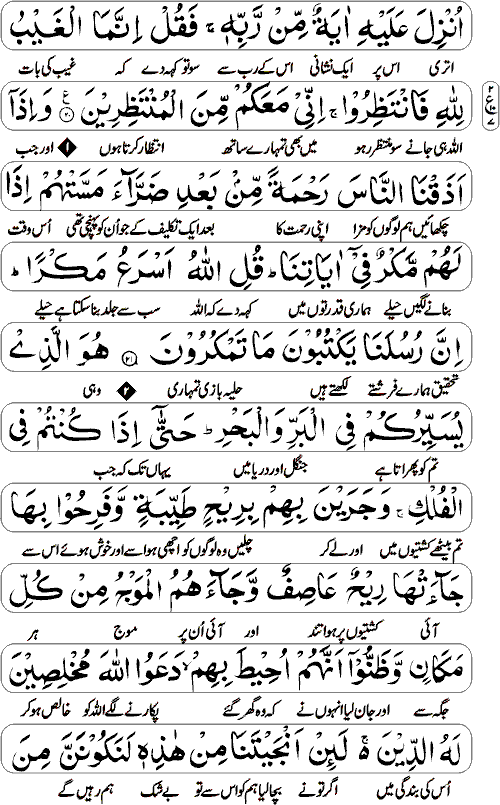 اُنْزِلَ عَلَيْهِ اٰيَةٌ مِّنْ رَّبِّهٖ ۚ فَقُلْ اِنَّمَا الْغَيْبُ
اتری اس پر ایک نشانی اس کے رب سے سو تو کہہ دے کہ غیب کی بات
لِلّٰهِ فَانْتَظِرُوْا ۚ اِنِّىْ مَعَكُمْ مِّنَ الْمُنْتَظِرِيْنَ ﴿۲۰﴾ وَاِذَاۤ
اللہ ہی جانے سو منتظر رہو میں بھی تمہارے ساتھ انتظار کرتا ہوں ۱ اور جب
اَذَقْنَا النَّاسَ رَحْمَةً مِّنْۢ بَعْدِ ضَرَّآءَ مَسَّتْهُمْ اِذَا
چکھائیں ہم لوگوں کو مزا اپنی رحمت کا بعد ایک تکلیف کے جو اُن کو پہنچی تھی اُس وقت
لَهُمْ مَّكْرٌ فِىْۤ اٰيَاتِنَا ؕ قُلِ اللّٰهُ اَسْرَعُ مَكْرًا ؕ
بنانے لگیں حیلے ہماری قدرتوں میں کہہ دے کہ اللہ سب سے جلد بنا سکتا ہے حیلے
اِنَّ رُسُلَنَا يَكْتُبُوْنَ مَا تَمْكُرُوْنَ ﴿۲۱﴾ هُوَ الَّذِىْ
تحقیق ہمارے فرشتے لکھتے ہیں حیلہ بازی تمہاری ۲ وہی
يُسَيِّرُكُمْ فِى الْبَرِّ وَالْبَحْرِ ؕ حَتّٰٓى اِذَا كُنْتُمْ فِى
تم کو پھراتا ہے جنگل اور دریا میں یہاں تک کہ جب
الْفُلْكِ ۚ وَجَرَيْنَ بِهِمْ بِرِيْحٍ طَيِّبَةٍ وَّفَرِحُوْا بِهَا
تم بیٹھے کشتیوں میں اور لے کر چلیں وہ لوگوں کو اچھی ہوا سے اور خوش ہوئے اس سے
جَآءَتْهَا رِيْحٌ عَاصِفٌ وَّجَآءَهُمُ الْمَوْجُ مِنْ كُلِّ
آئی کشتیوں پر ہوا تند اور آئی اُن پر موج ہر
مَكَانٍ وَّظَنُّوْۤا اَنَّهُمْ اُحِيْطَ بِهِمْ ۙ دَعَوُا اللّٰهَ مُخْلِصِيْنَ
جگہ سے اور جان لیا انہوں نے کہ وہ گھر گئے پکارنے لگے اللہ کو خالص ہو کر
لَهُ الدِّيْنَ ۚ لَئِنْ اَنْجَيْتَنَا مِنْ هٰذِهٖ لَنَكُوْنَنَّ مِنَ
اُس کی بندگی میں اگر تو نے بچا لیا ہم کو اس سے تو بے شک ہم رہیں گے